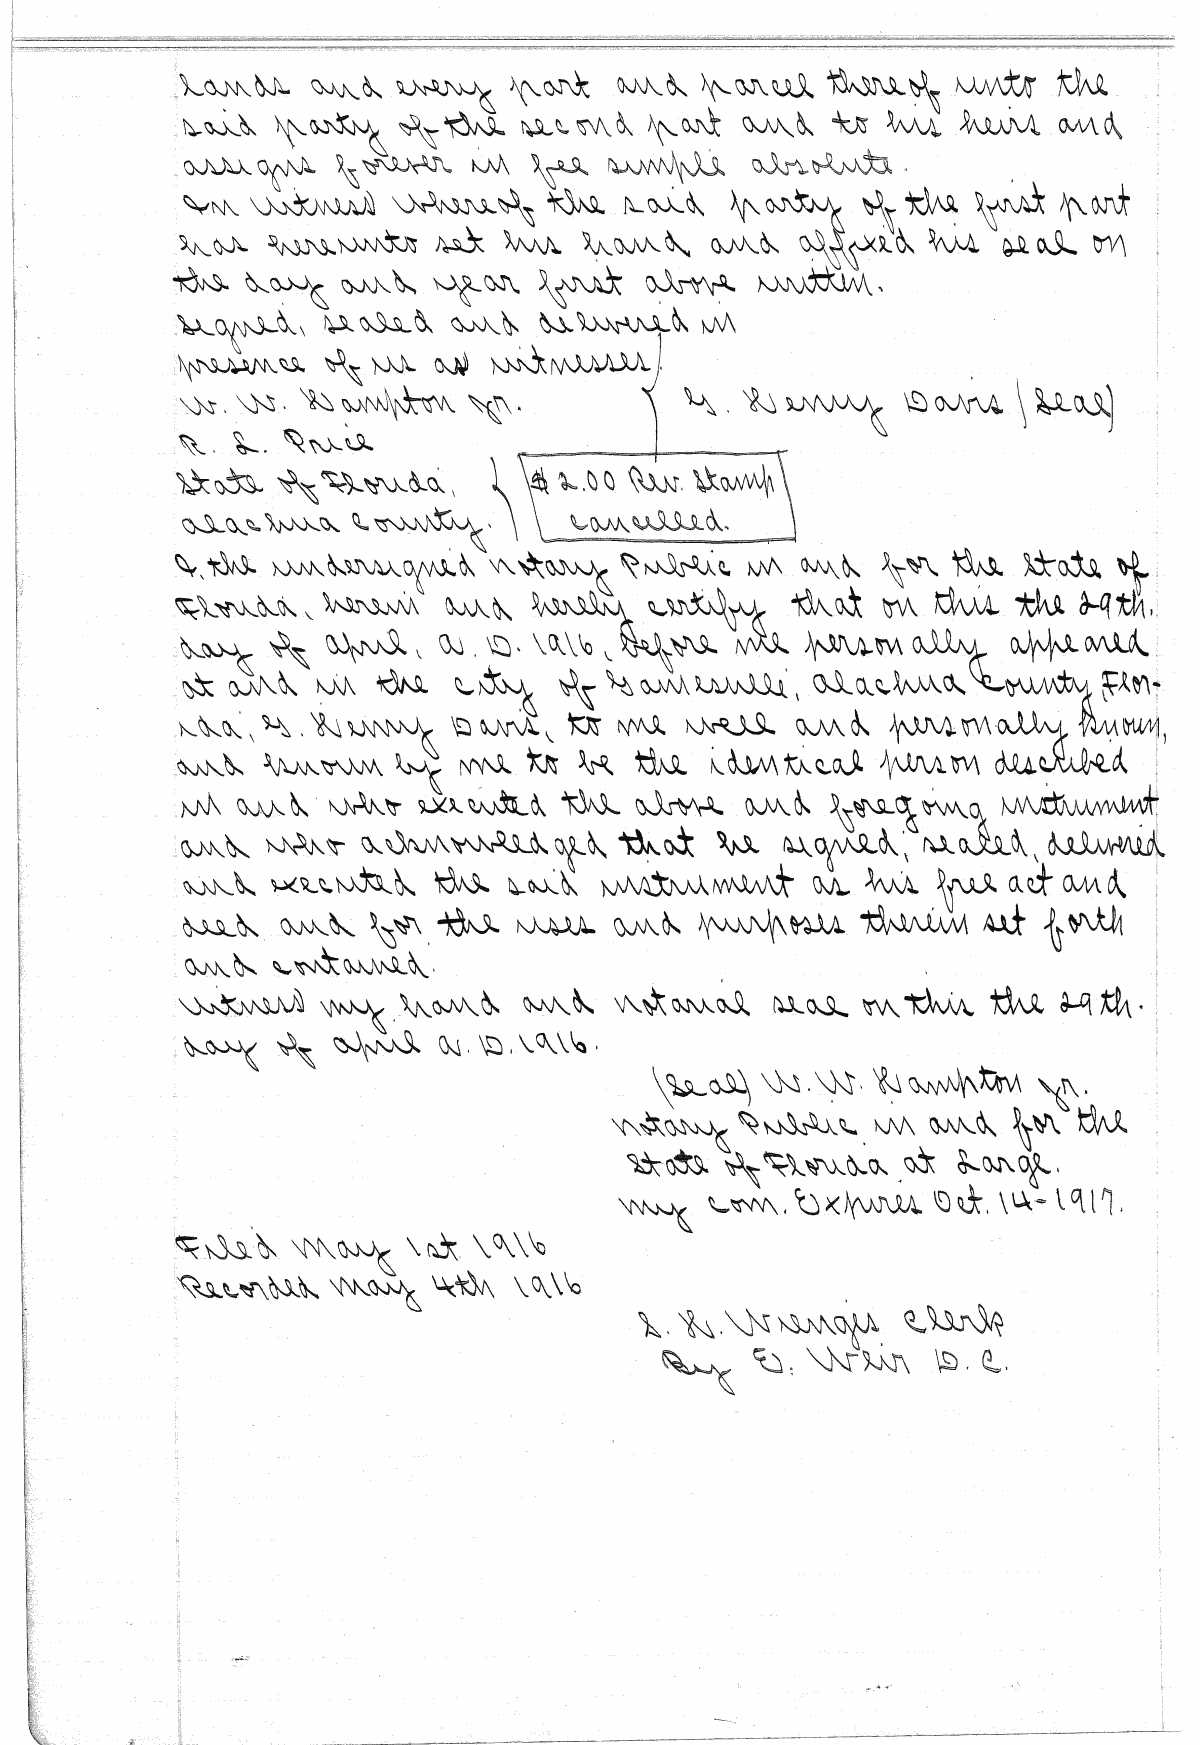 lands and every part and parcel thereof unto the
said party of the second part and to his heirs and
assigns forever in fee simple absolute.
In witness whereof the said party of the first part
has hereunto set his hand and affixed his seal on
the day and year first above written.
Signed, sealed and delivered in
presence of us as witnesses
W. W. Hampton Jr. G. Henry Davis (Seal)
R. L. Price
State of Florida,
Alachua County.
$2.00 Rev. Stamp
cancelled.
I, the undersigned Notary Public in and for the State of
Florida, herein and hereby certify that on this the 29th.
day of April, A. D. 1916, before me personally appeared
at and in the city of Gainesville, Alachua County, Flor-
ida, G. Henry Davis, to me well and personally known,
and known by me to be the identical person described
in and who executed the above and foregoing instrument
and who acknowledged that he signed, sealed, delivered
and executed the said instrument as his free act and
deed and for the uses and purposes therein set forth
and contained.
Witness my hand and notarial seal on this the 29th.
day of April A. D. 1916.
(Seal) W. W. Hampton Jr.
Notary Public in and for the
State of Florida at Large.
My com. Expires Oct. 14-1917.
Filed May 1st 1916
Recorded May 4th 1916
S. H. Wienges Clerk
By E. Weir D. C.